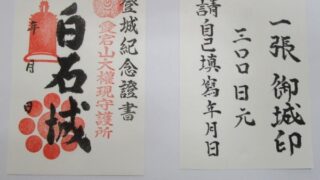 登城紀念證書
愛宕山大權現守護所
白石城
年月日
一張御城印
三〇〇日元
請自己填寫年月日